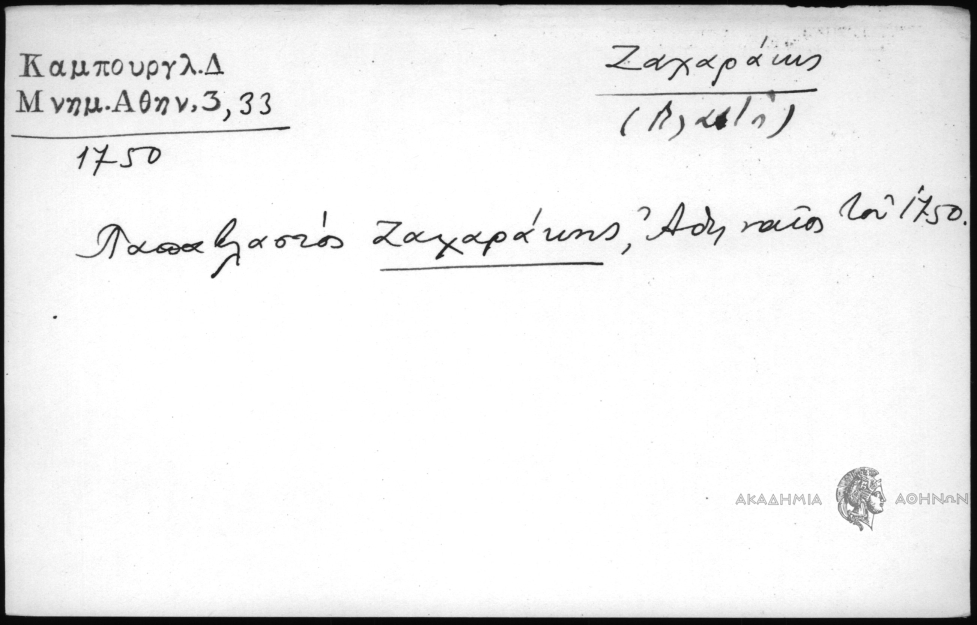 Καμπουργλ.Δ
Μνημ.Αθην.3,33
1750
Ζαχαράκης
Παπαβλαστός Ζαχαράκης, Ἀθηναῖος τοῦ 1750.
ΑΚΑΔΗΜΙΑ ΑΘΗΝΩΝ